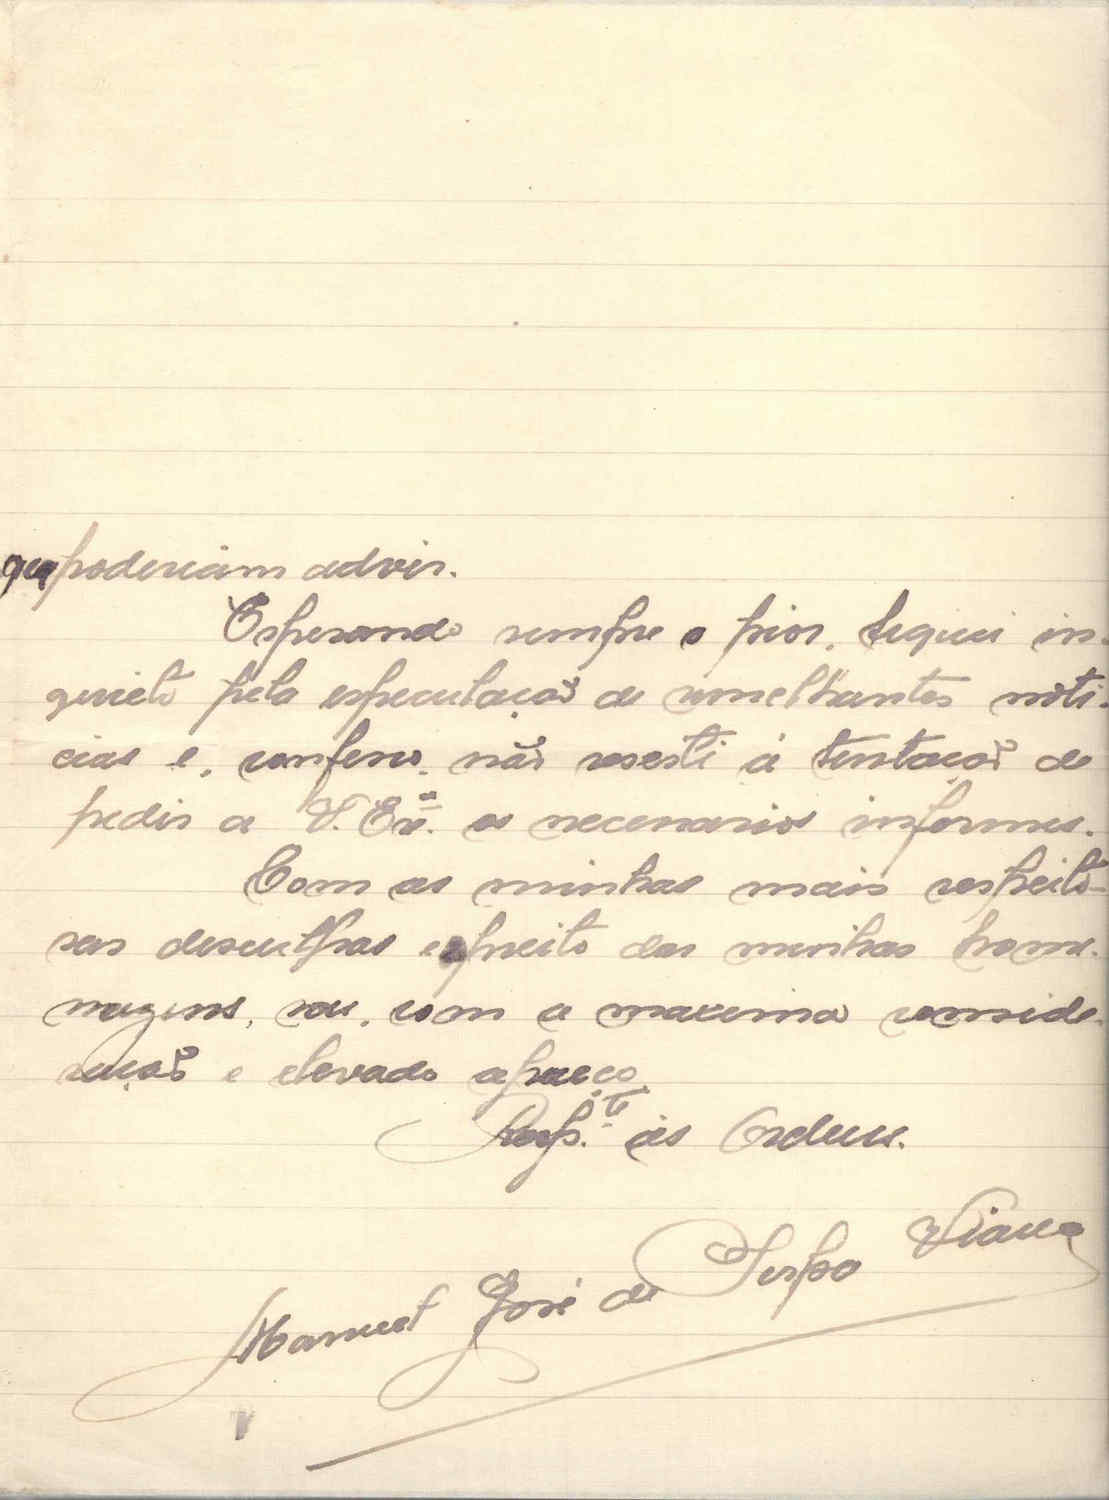 que poderiam advir.
Esperando sempre o pior, fiquei in-
quieto pela especulação de semelhantes noti-
cias e, confesso, não resesti á tentação de
pedir a V. Ex.ª os necessarios informes.
Com as minhas mais respeito-
sas desculpas e preito das minhas home-
nagens, sou, com a maxima conside-
ração e elevado apreço
às Ordens.
Manuel José de Serpa Viana